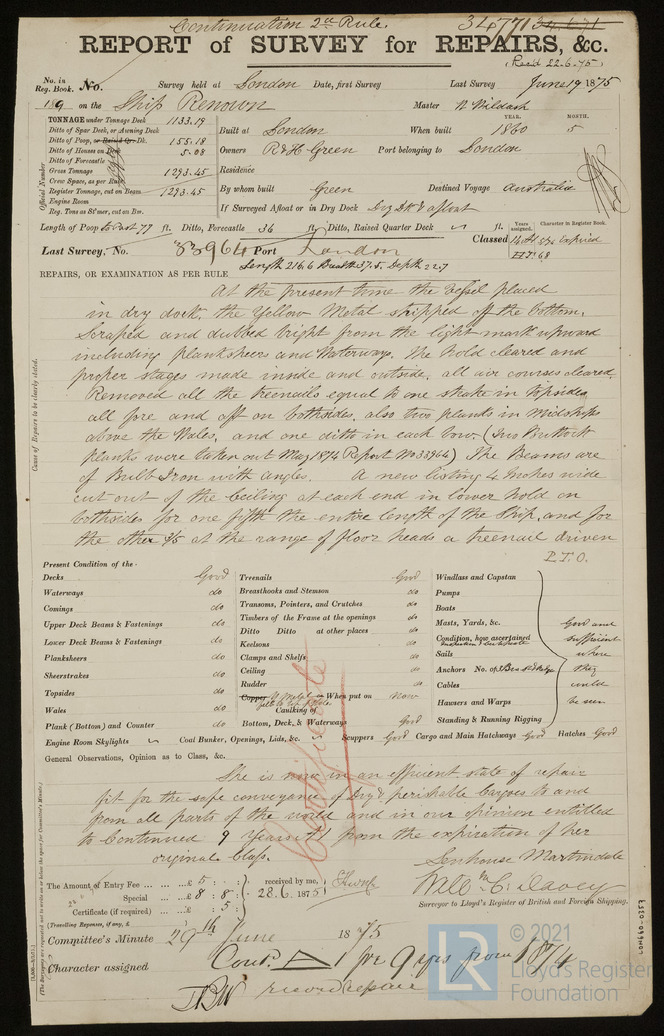 Continuation 2nd Rule.
34771 34671
REPORT of SURVEY for REPAIRS, &c.
(Recd 22.6.75)
No. in Reg. Book. No. Survey held at London Date, first Survey Last Survey June 19 1875
189 on the Ship Renown Master N Wildash
TONNAGE under Tonnage Deck 1133.19
Ditto of Spar Deck, or Awning Deck
Ditto of Poop, or Raised Qr. Dk. 155.18
Ditto of Houses on Deck 5.08
Ditto of Forecastle
Gross Tonnage 1293.45
Crew Space, as per Rule
Register Tonnage, cut on Beam 1293.45
Engine Room
Reg. Tons as St'mer, cut on Bm.
Official Number
Built at London When built YEAR. 1860 MONTH. 5
Owners R & H Green Port belonging to London
Residence
By whom built Green Destined Voyage Australia
If Surveyed Afloat or in Dry Dock Dry Dk & afloat
Length of Poop 77 ft. Ditto, Forecastle 36 ft. Ditto, Raised Quarter Deck ft.
Years assigned. Character in Register Book.
Last Survey, No. 33964 Port London Classed 14 A1 expired
Length 216.6 Breadth 37.5 Depth 22.7
REPAIRS, OR EXAMINATION AS PER RULE
Cause of Repairs to be clearly stated.
At the present time the vessel placed
in dry dock, the Yellow Metal stripped off the bottom.
Scraped and dubbed bright from the light mark upward
including planksheers and Waterways. The hold cleared and
proper stages made inside and outside, all air courses cleared.
Removed all the treenails equal to one strake in topsides
all fore and aft on bothsides, also two planks in Midships
above the Wales, and one ditto in each bow. (Two Buttock
planks were taken out May 1874 Report No 33964) The Beams are
of Bulb Iron with angles. A new listing 4 Inches wide
cut out of the ceiling at each end in lower hold on
bothsides for one fifth the entire length of the Ship, and for
the other 3/5 at the range of floor heads a treenail driven
P.T.O.
Present Condition of the
Decks Good
Waterways do
Comings do
Upper Deck Beams & Fastenings do
Lower Deck Beams & Fastenings do
Planksheers do
Sheerstrakes do
Topsides do
Wales do
Plank (Bottom) and Counter do
Treenails Good
Breasthooks and Stemson do
Transoms, Pointers, and Crutches do
Timbers of the Frame at the openings do
Ditto Ditto at other places do
Keelsons do
Clamps and Shelfs do
Ceiling do
Rudder do
Copper Y Metal or When put on now
Caulking of
Bottom, Deck, & Waterways Good
Windlass and Capstan
Pumps
Boats
Masts, Yards, &c.
Condition, how ascertained
Sails
Anchors No. of 3 Bow
Cables
Hawsers and Warps
Standing & Running Rigging
Good and
sufficient
where
they
could
be seen
Engine Room Skylights Coal Bunker, Openings, Lids, &c. Scuppers Good Cargo and Main Hatchways Good Hatches Good
General Observations, Opinion as to Class, &c.
Certificate
She is now in an efficient state of repair
fit for the safe conveyance of Dry & perishable cargoes to and
from all parts of the world and in our opinion entitled
to Continued 9 Years A1 from the expiration of her
original Class.
Senhouse Martindale
Willm C. Davey
Surveyor to Lloyd's Register of British and Foreign Shipping.
The Amount of Entry Fee ... £ 5 : : received by me,
Special ... £ 8 : 8 : 28.6.1875
Certificate (if required) ... : 5 :
(Travelling Expenses, if any, £ )
Committee's Minute 29th June 1875
Character assigned Cont. A 1 for 9 yrs from 1874
record repair
(The Surveyors are requested not to write on or below the space for Committee's Minute.)
© 2021
LR
Lloyd's Register
Foundation